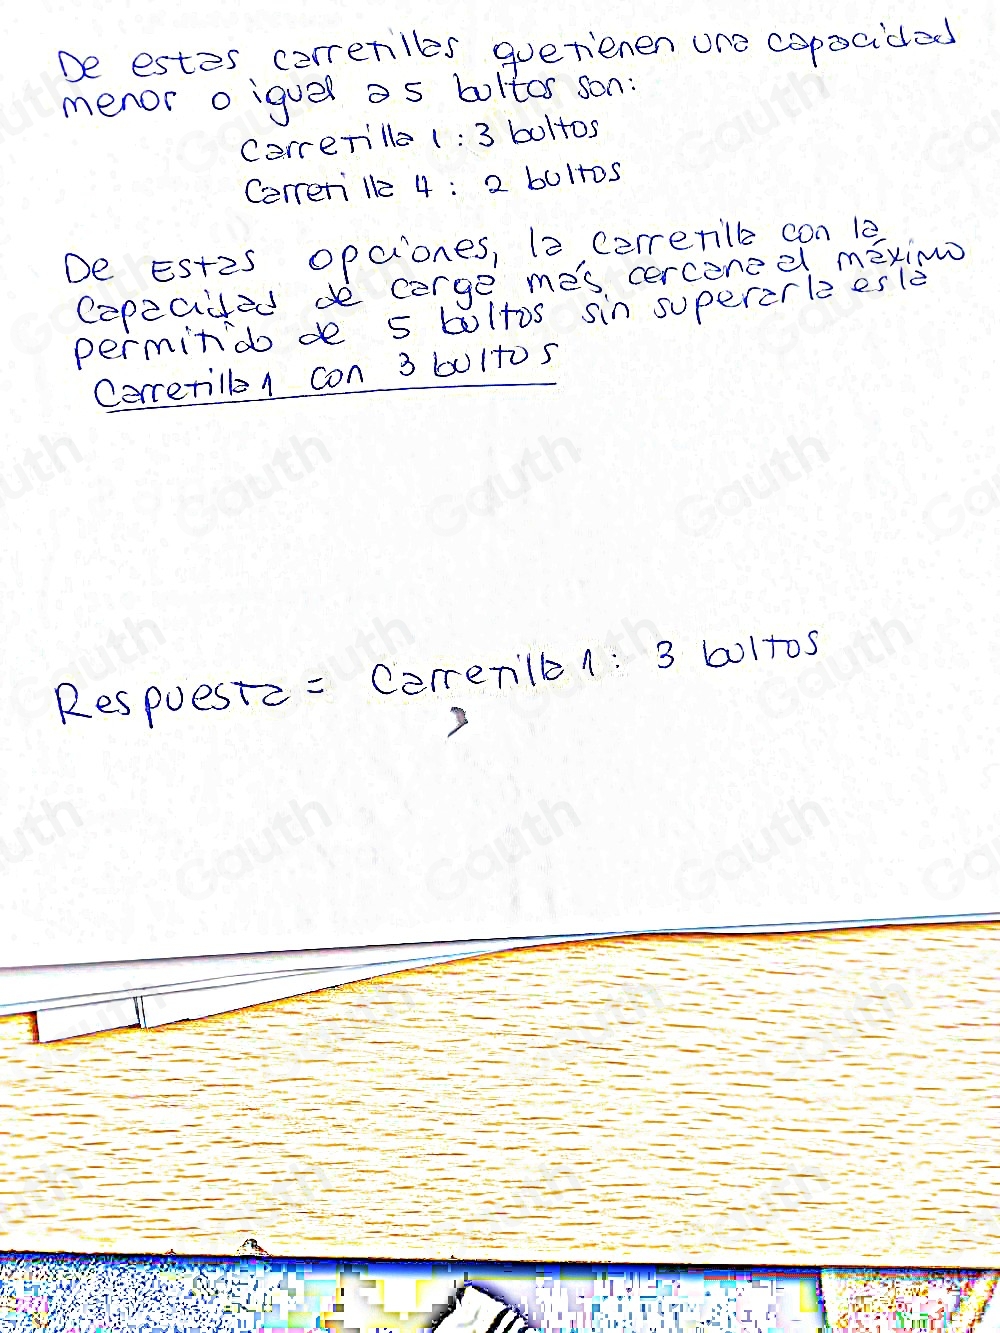 De estas carretillas que tienen una capacidad
menor o igual a 5 bultos son:
Carretilla 1 : 3 bultos
Carretilla 4 : 2 bultos
De Estas opciones, la carretilla con la
capacidad de carga más cercana al máximo
permitido de 5 bultos sin superarla es la
Carretilla 1 con 3 bultos
Respuesta = Carretilla 1 : 3 bultos